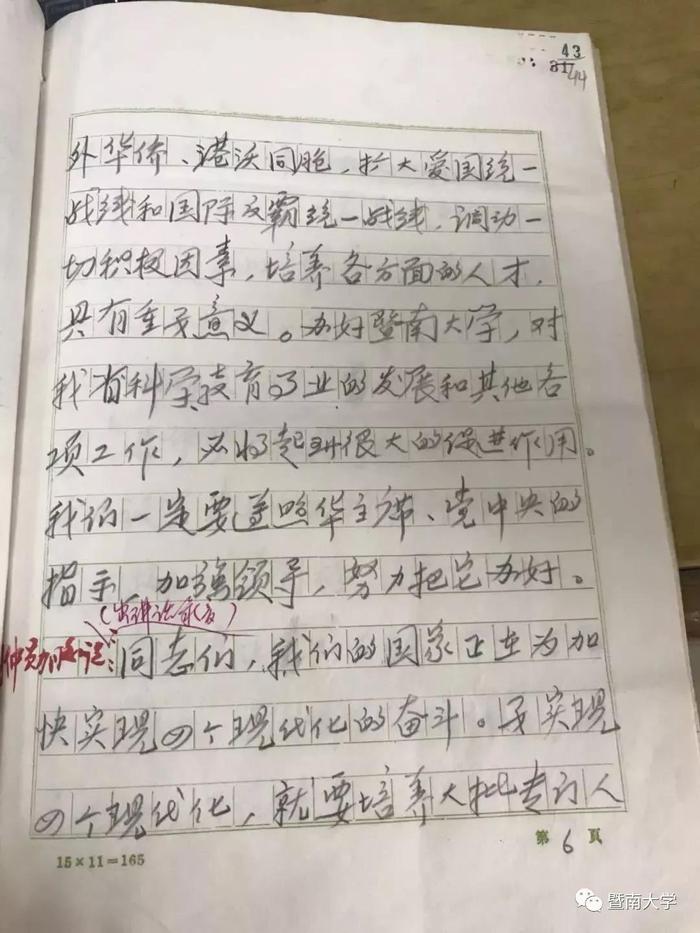 43
44
外华侨、港沃同胞，扩大爱国统一
战线和国际反霸统一战线，调动一
切积极因素，培养各方面的人才，
具有重要意义。办好暨南大学，对
我省科学教育事业的发展和其他各
项工作，必将起到很大的促进作用。
我们一定要遵照华主席、党中央的
指示，加强领导，努力把它办好。
同志们，我们的国家正在为加
快实现四个现代化的奋斗。要实现
四个现代化，就要培养大批专门人
第6頁
15×11=165
暨南大学